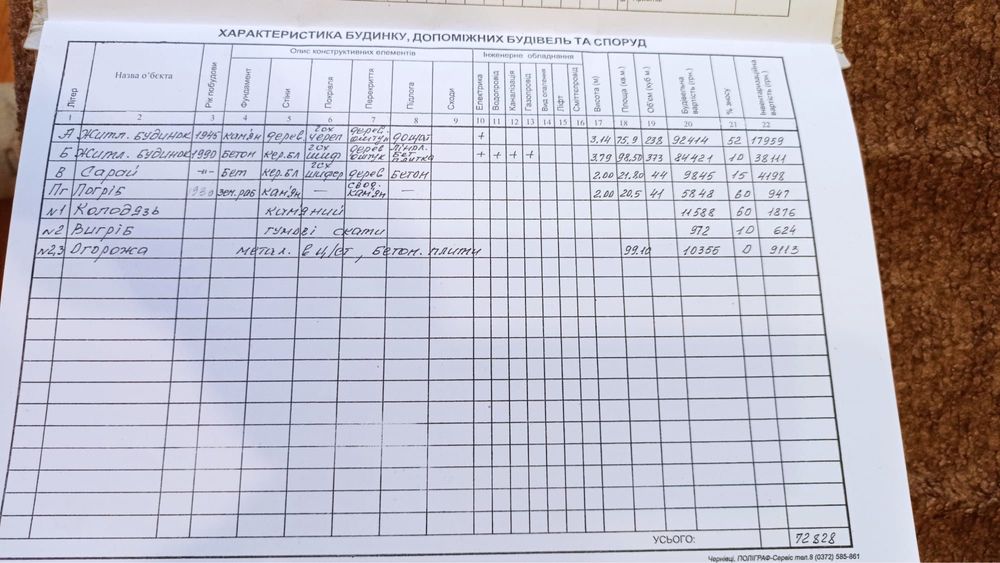 ХАРАКТЕРИСТИКА БУДИНКУ, ДОПОМІЖНИХ БУДІВЕЛЬ ТА СПОРУД
Опис конструктивних елементів Інженерне обладнання
Літер Назва о'бєкта Рік побудови Фундамент Стіни Покрівля Перекриття Підлога Сходи Електрика Водопровід Каналізація Газопровід Вид опалення Ліфт Сміттєпровід Висота (м) Площа (кв.м.) Об'єм (куб м.) Будівельна вартість (грн.) % зносу Інвентаризаційна вартість (грн.)
1 2 3 4 5 6 7 8 9 10 11 12 13 14 15 16 17 18 19 20 21 22
А Житл. будинок 1945 кам'ян дерев. 2сх череп дерев. оштук дощат + 3.14 75,9 238 92414 52 17959
Б Житл. будинок 1990 бетон кер.бл 2сх шиф дерев оштук лінол. бет плитка + + + + 3.79 98.50 373 84421 10 38111
В Сарай -"- Бет кер.бл 2сх шифер дерев бетон 2.00 21.80 44 9845 15 4198
Пг Погріб кам'ян — свод. кам'ян — 2.00 20.5 41 5848 60 947
№1 Колодязь кам'яний 11588 60 1876
№2 Вигріб гумові скати 972 10 624
№2,3 Огорожа метал. в ц/ст, бетон. плити 99.10 10355 0 9113
УСЬОГО: 72828
Чернівці, ПОЛІГРАФ-Сервіс тел.8 (0372) 585-861